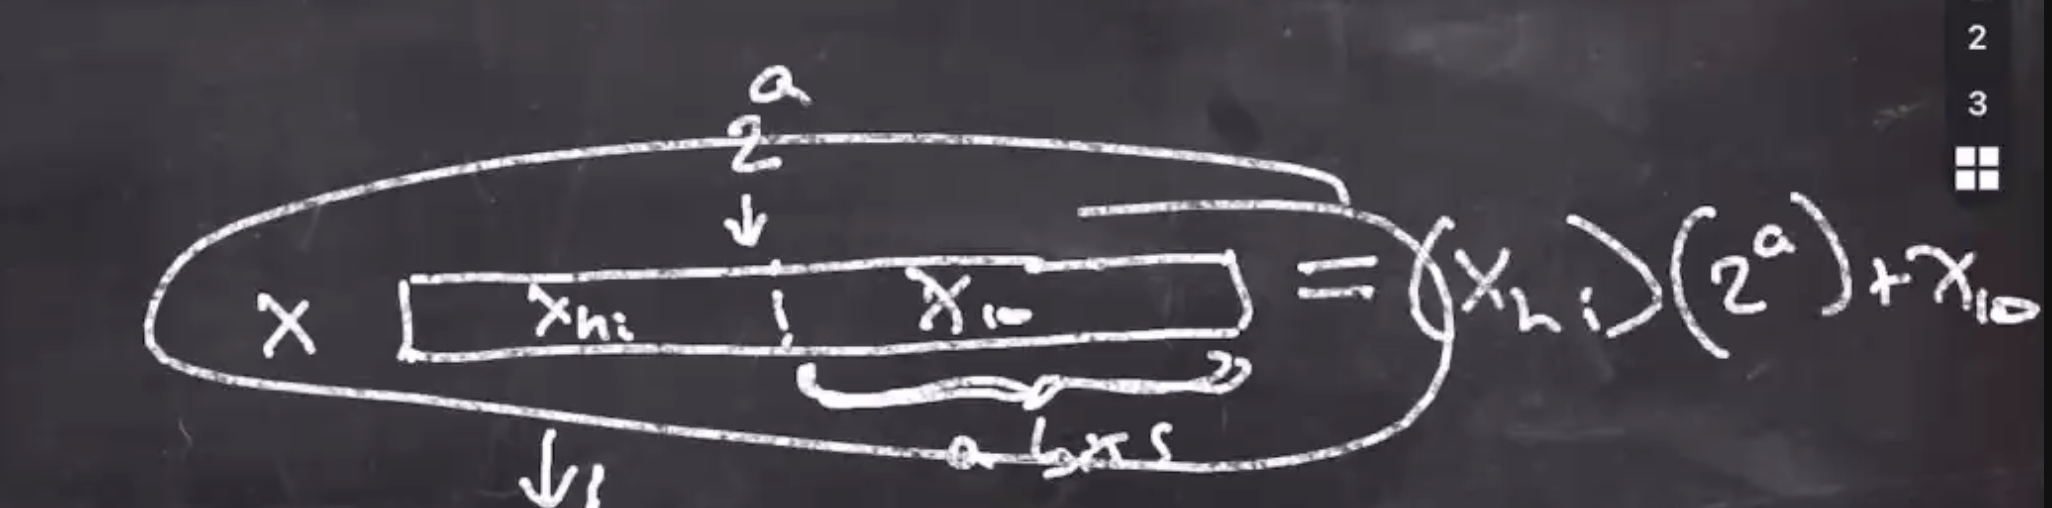 2
3
2^a
↓
X X_hi X_lo = (X_hi)(2^a) + X_lo
a bits
↓